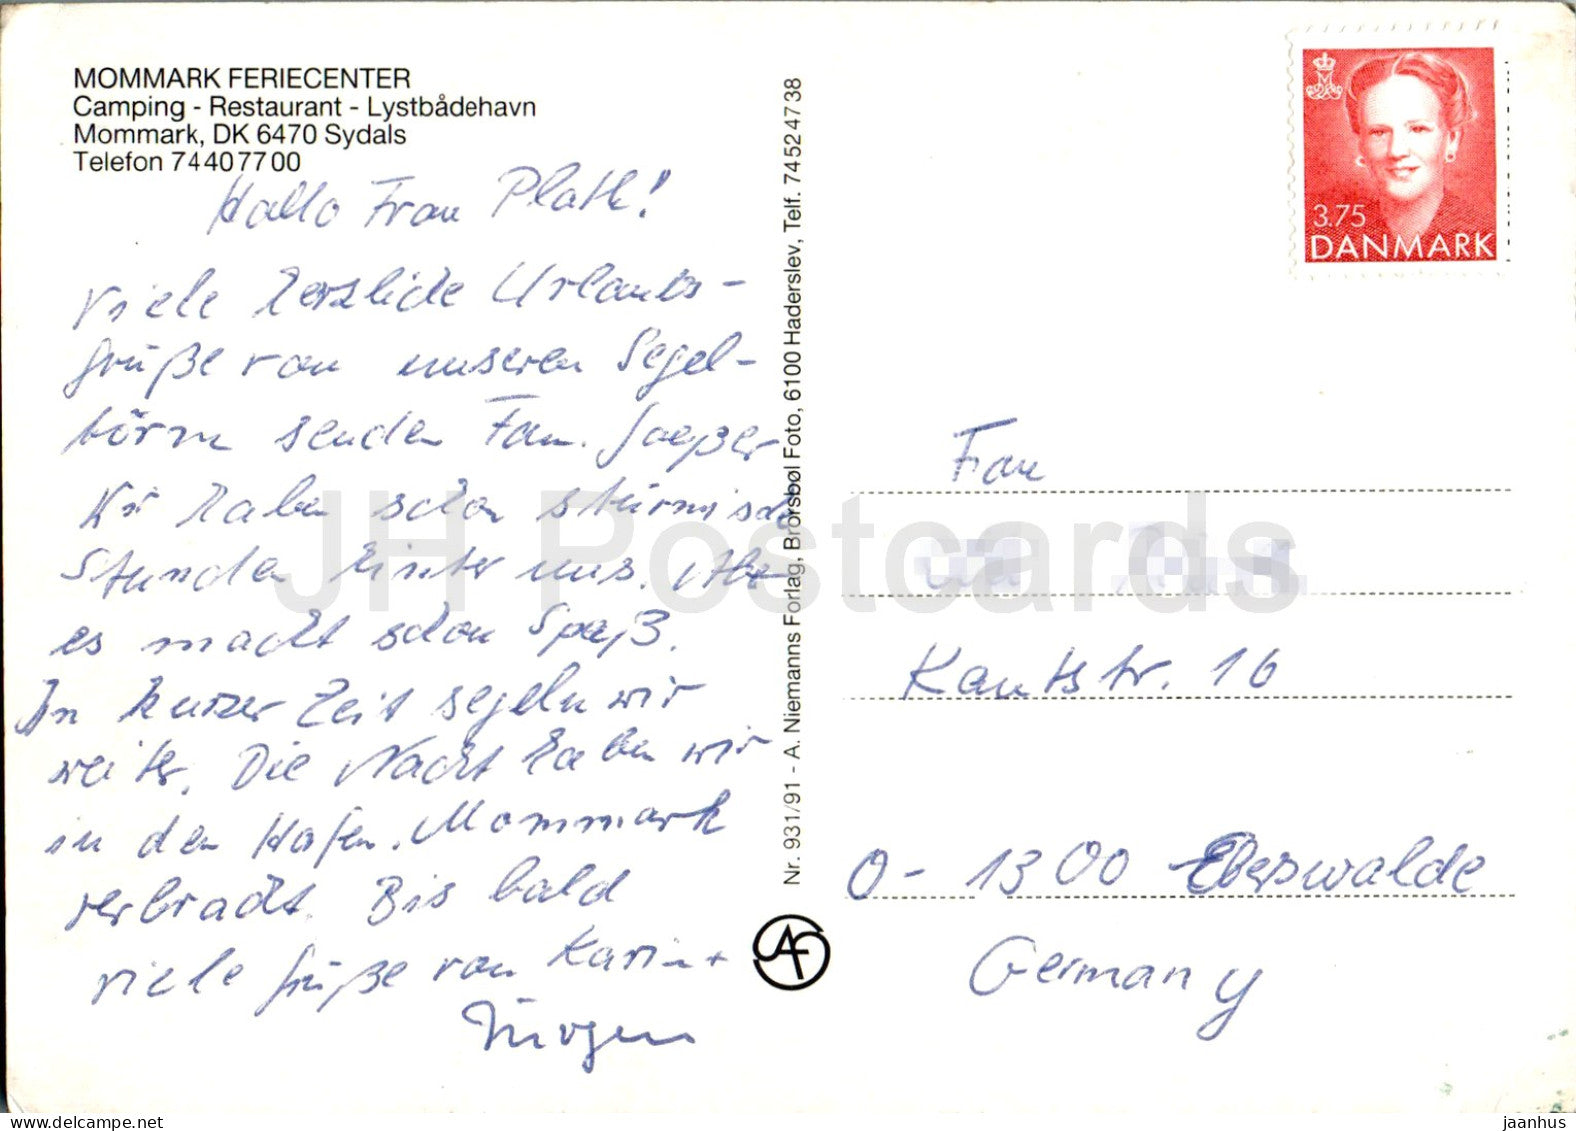 MOMMARK FERIECENTER
Camping - Restaurant - Lystbådehavn
Mommark, DK 6470 Sydals
Telefon 74 40 77 00
Hallo Frau Plath!
Viele herzliche Urlaubs-
grüße von unseren Segel-
törn senden Fam. Jaeßer
Wir haben schon stürmische
Stunden hinter uns. Aber
es macht schon Spaß.
In kurzer Zeit segeln wir
weiter. Die Nacht haben wir
in den Hafen. Mommark
verbracht. Bis bald
viele Grüße von Karin +
Jürgen
Nr. 931/91 - A. Niemanns Forlag, Brorsbøl Foto, 6100 Haderslev, Telf. 74524738
3.75
DANMARK
Frau
Kantstr. 16
O-1300 Eberswalde
Germany
JH Postcards
jaanhus
delcampe.net